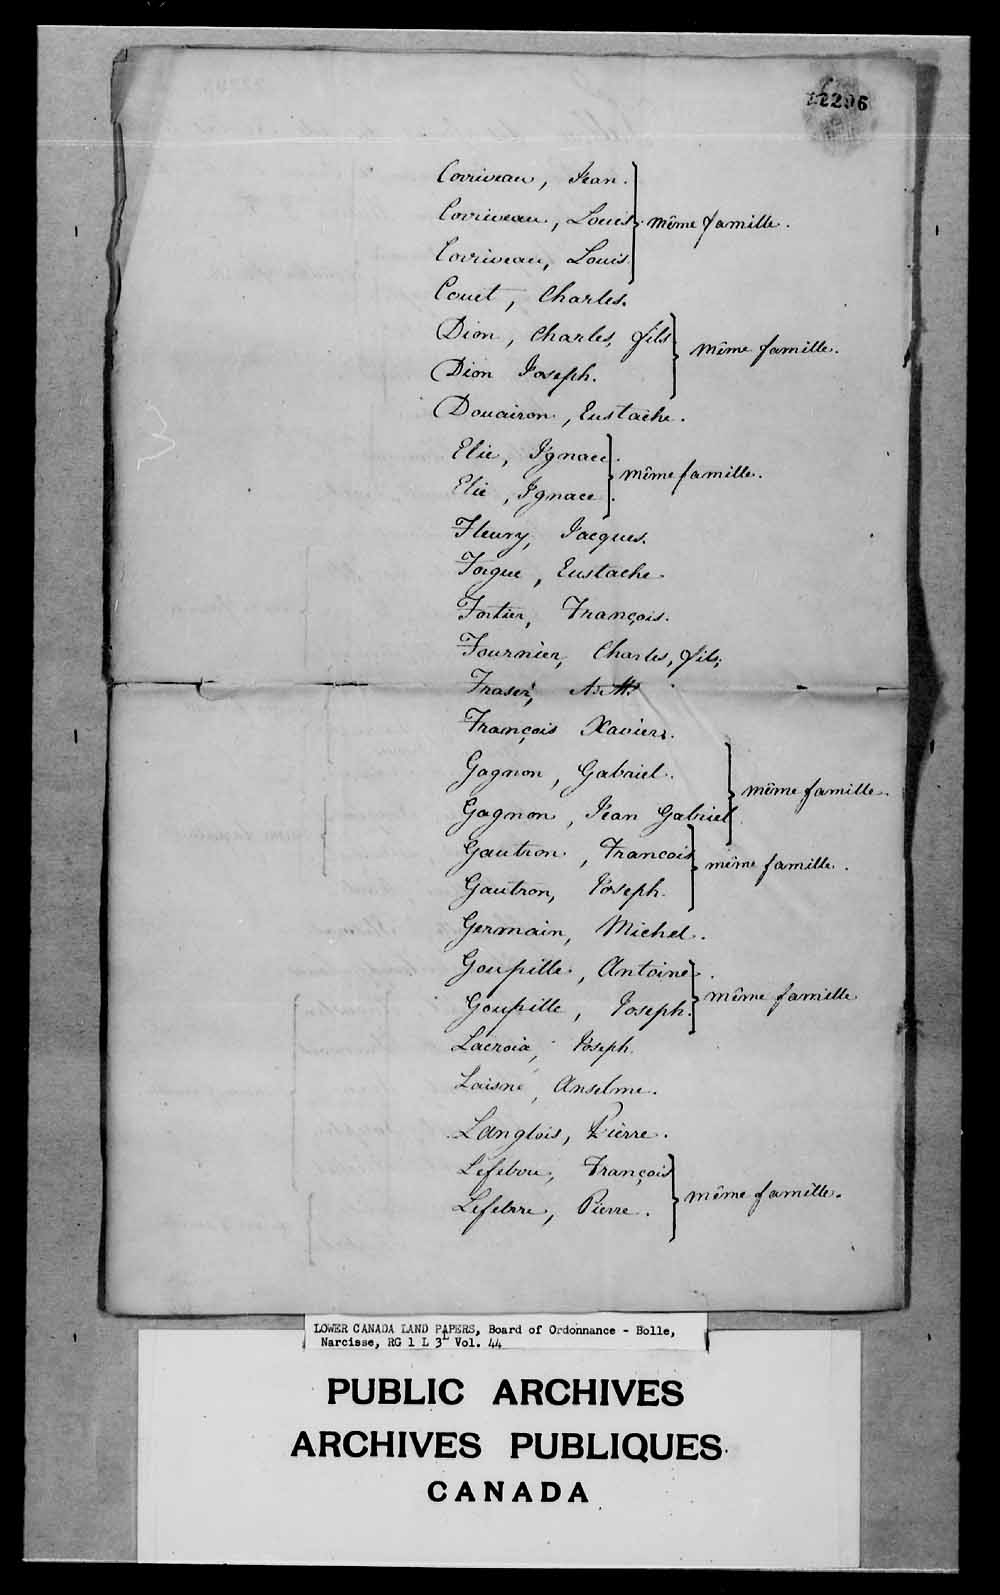 22296
Corriveau, Jean.
Corriveau, Louis. même famille.
Corriveau, Louis.
Couet, Charles.
Dion, Charles, fils
même famille.
Dion Joseph.
Douairon, Eustache.
Elie, Ignace.
même famille.
Elie, Ignace.
Fleury, Jacques.
Forgue, Eustache
Fortier, François.
Fournier, Charles, fils,
Fraser,
François Xavier.
Gagnon, Gabriel.
même famille.
Gagnon, Jean Gabriel
Gautron, Francois
même famille.
Gautron, Joseph.
Germain, Michel.
Goupille, Antoine.
même famille
Goupille, Joseph.
Lacroix, Joseph.
Laisné, Anselme.
Langlois, Pierre.
Lefebvre, François
même famille.
Lefebvre, Pierre.
LOWER CANADA LAND PAPERS, Board of Ordonnance - Bolle,
Narcisse, RG 1 L 3L Vol. 44
PUBLIC ARCHIVES
ARCHIVES PUBLIQUES
CANADA